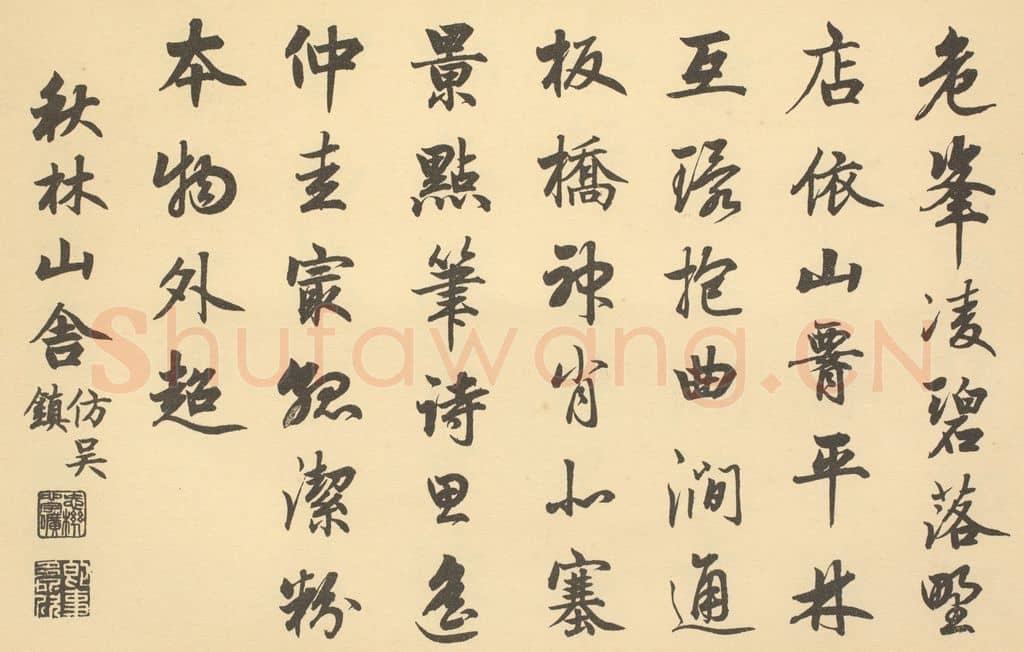 危峯凌碧落野
店依山平林
互環抱曲澗通
板橋神肖北塞
景點筆詩思遙
仲圭㝡孤潔粉
本物外超
秋林山舍
仿吴
鎮
Shufawang.CN